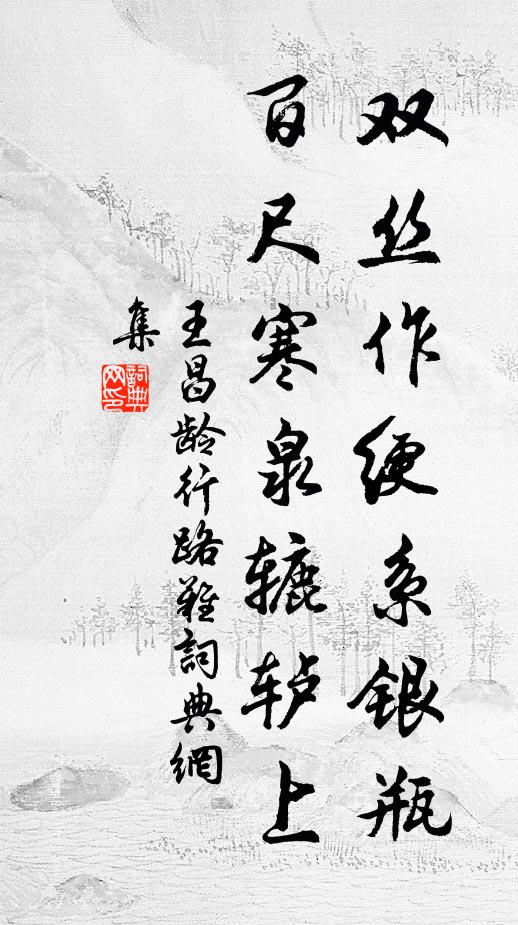 双丝作绠系银瓶
百尺寒泉辘轳上
王昌龄行路难詞典網
集
詞典
网印